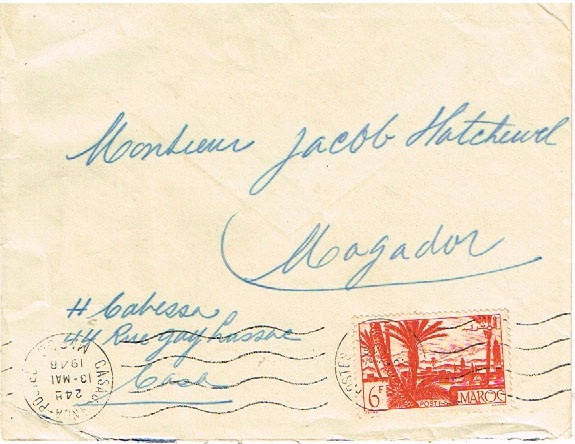 Monsieur Jacob Hatchuel
Mogador
H Cabessa
44 Rue gay Lussac
Casa
CASABLANCA-POSTES
24H
13-MAI
1948
POSTES
6F
POSTES
MAROC